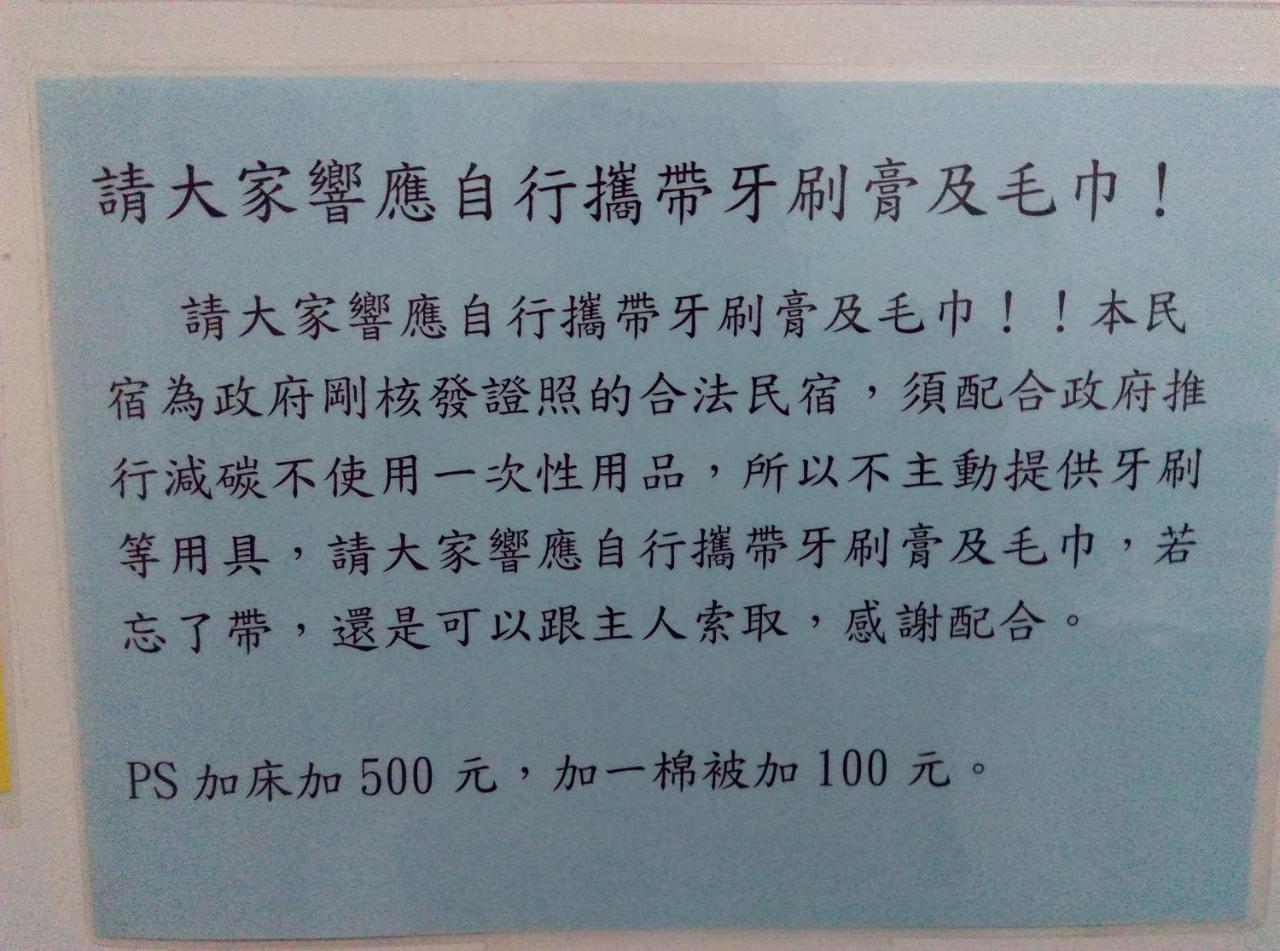 請大家響應自行攜帶牙刷膏及毛巾！
請大家響應自行攜帶牙刷膏及毛巾！！本民
宿為政府剛核發證照的合法民宿，須配合政府推
行減碳不使用一次性用品，所以不主動提供牙刷
等用具，請大家響應自行攜帶牙刷膏及毛巾，若
忘了帶，還是可以跟主人索取，感謝配合。
PS 加床加 500 元，加一棉被加 100 元。